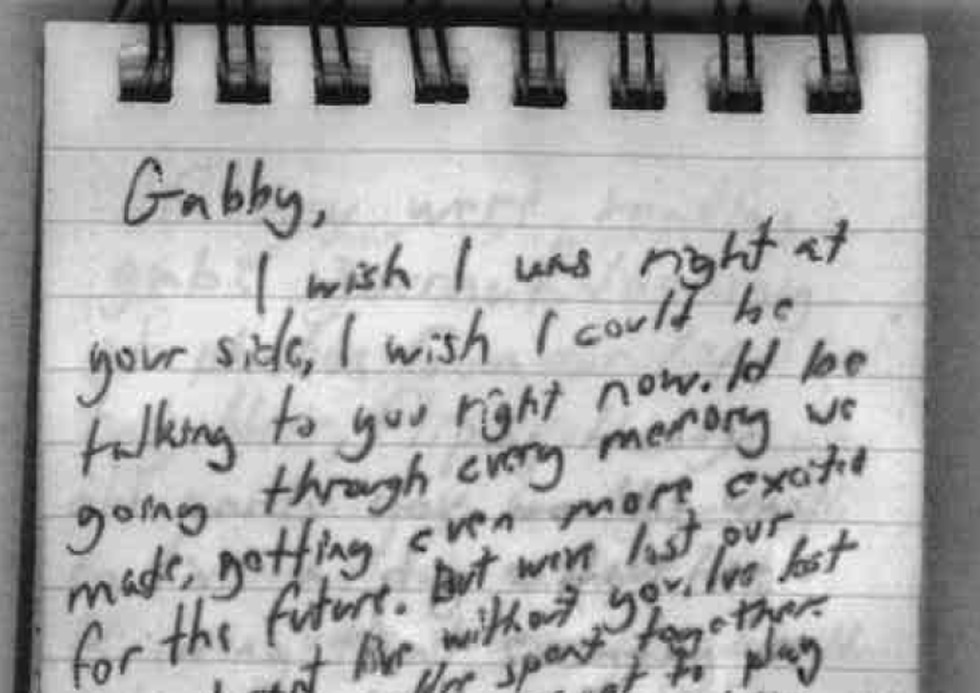 Gabby,
I wish I was right at
your side, I wish I could be
talking to you right now. Id be
going through every memory we
made, getting even more excited
for the future. But were lost our
live without you. Ive lost
spent together
to play